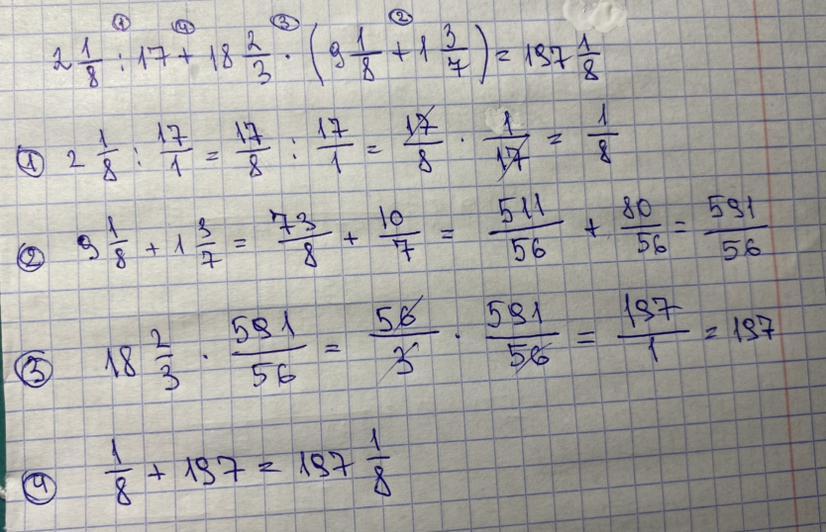 ① ④ ③ ②
2 1/8 : 17 + 18 2/3 · (9 1/8 + 1 3/7) = 197 1/8
① 2 1/8 : 17/1 = 17/8 : 17/1 = 17/8 · 1/17 = 1/8
② 9 1/8 + 1 3/7 = 73/8 + 10/7 = 511/56 + 80/56 = 591/56
③ 18 2/3 · 591/56 = 56/3 · 591/56 = 197/1 = 197
④ 1/8 + 197 = 197 1/8